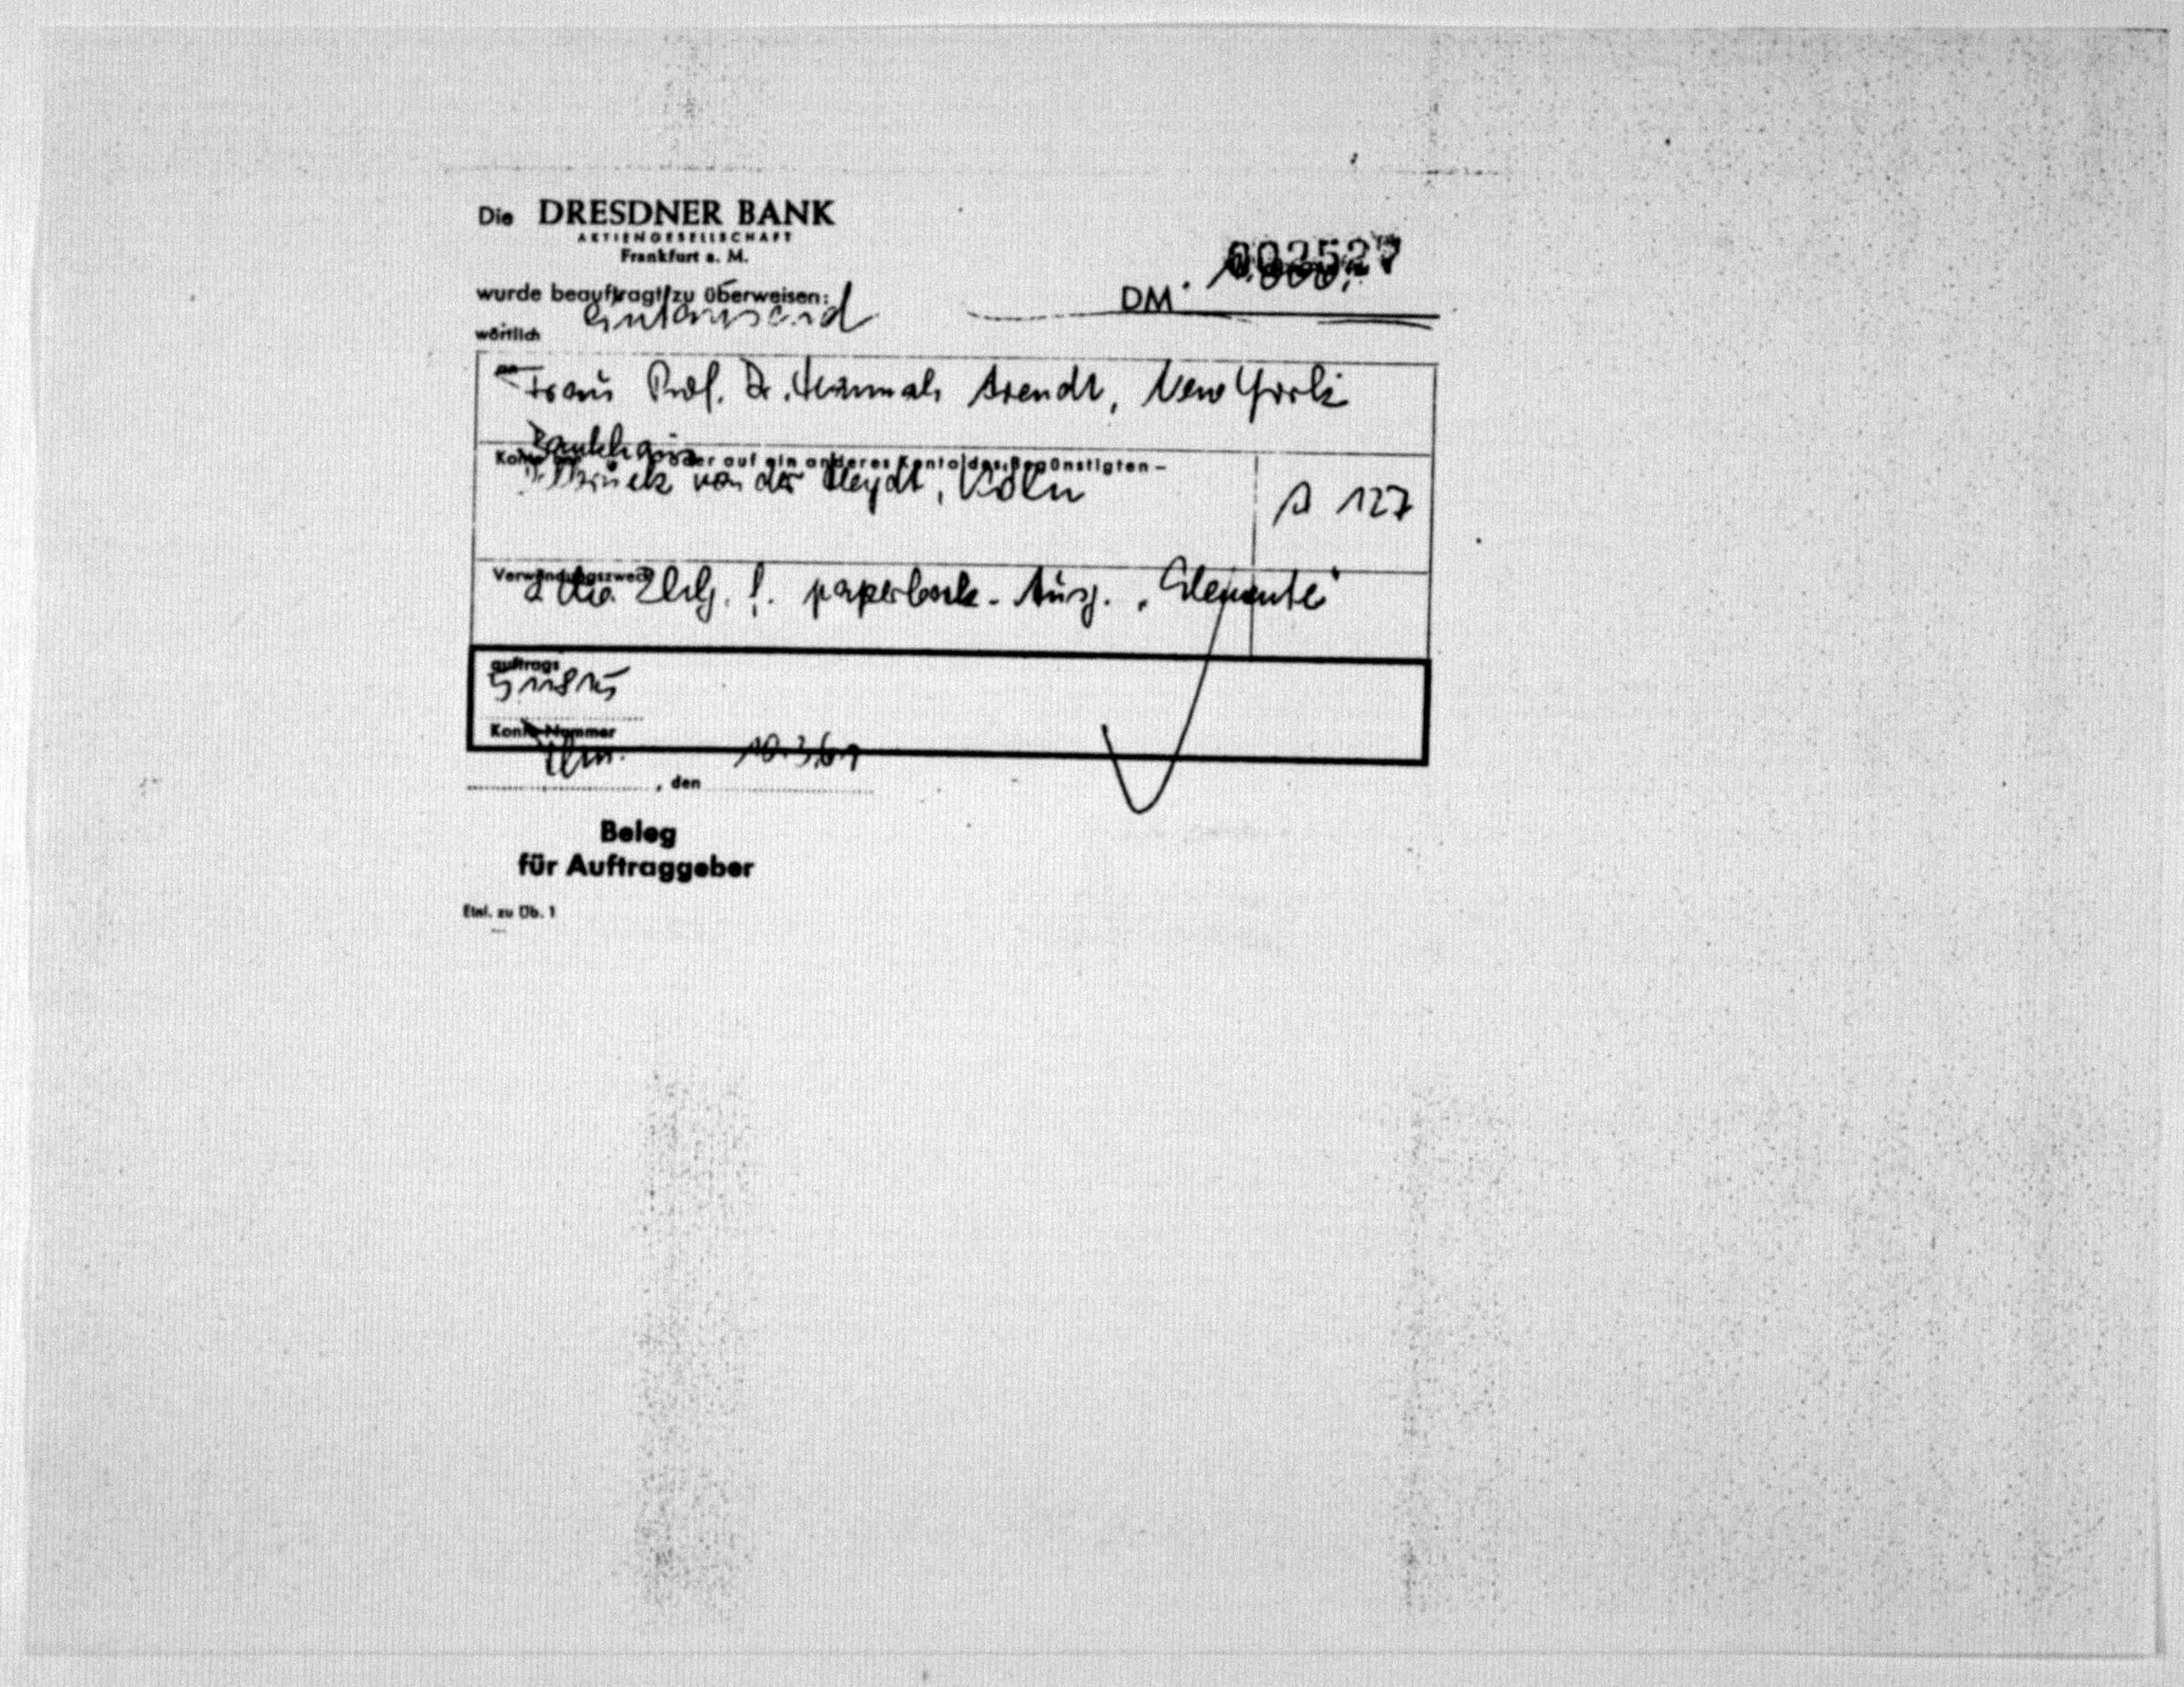 Die DRESDNER BANK
AKTIENGESELLSCHAFT
Frankfurt a. M.
002527
wurde beauftragt zu überweisen:
DM 1.000,-
eintausend
wörtlich
an
Frau Prof. Dr. Hannah Arendt, New York
Bankhaus
Konto oder auf ein anderes Konto des Begünstigten –
Delbrück von der Heydt, Köln
A 127
Verwendungszweck
paperback-Ausg. „Elemente"
auftrags
Konto-Nummer
10.3.61
, den
Beleg
für Auftraggeber
Einl. zu Üb. 1